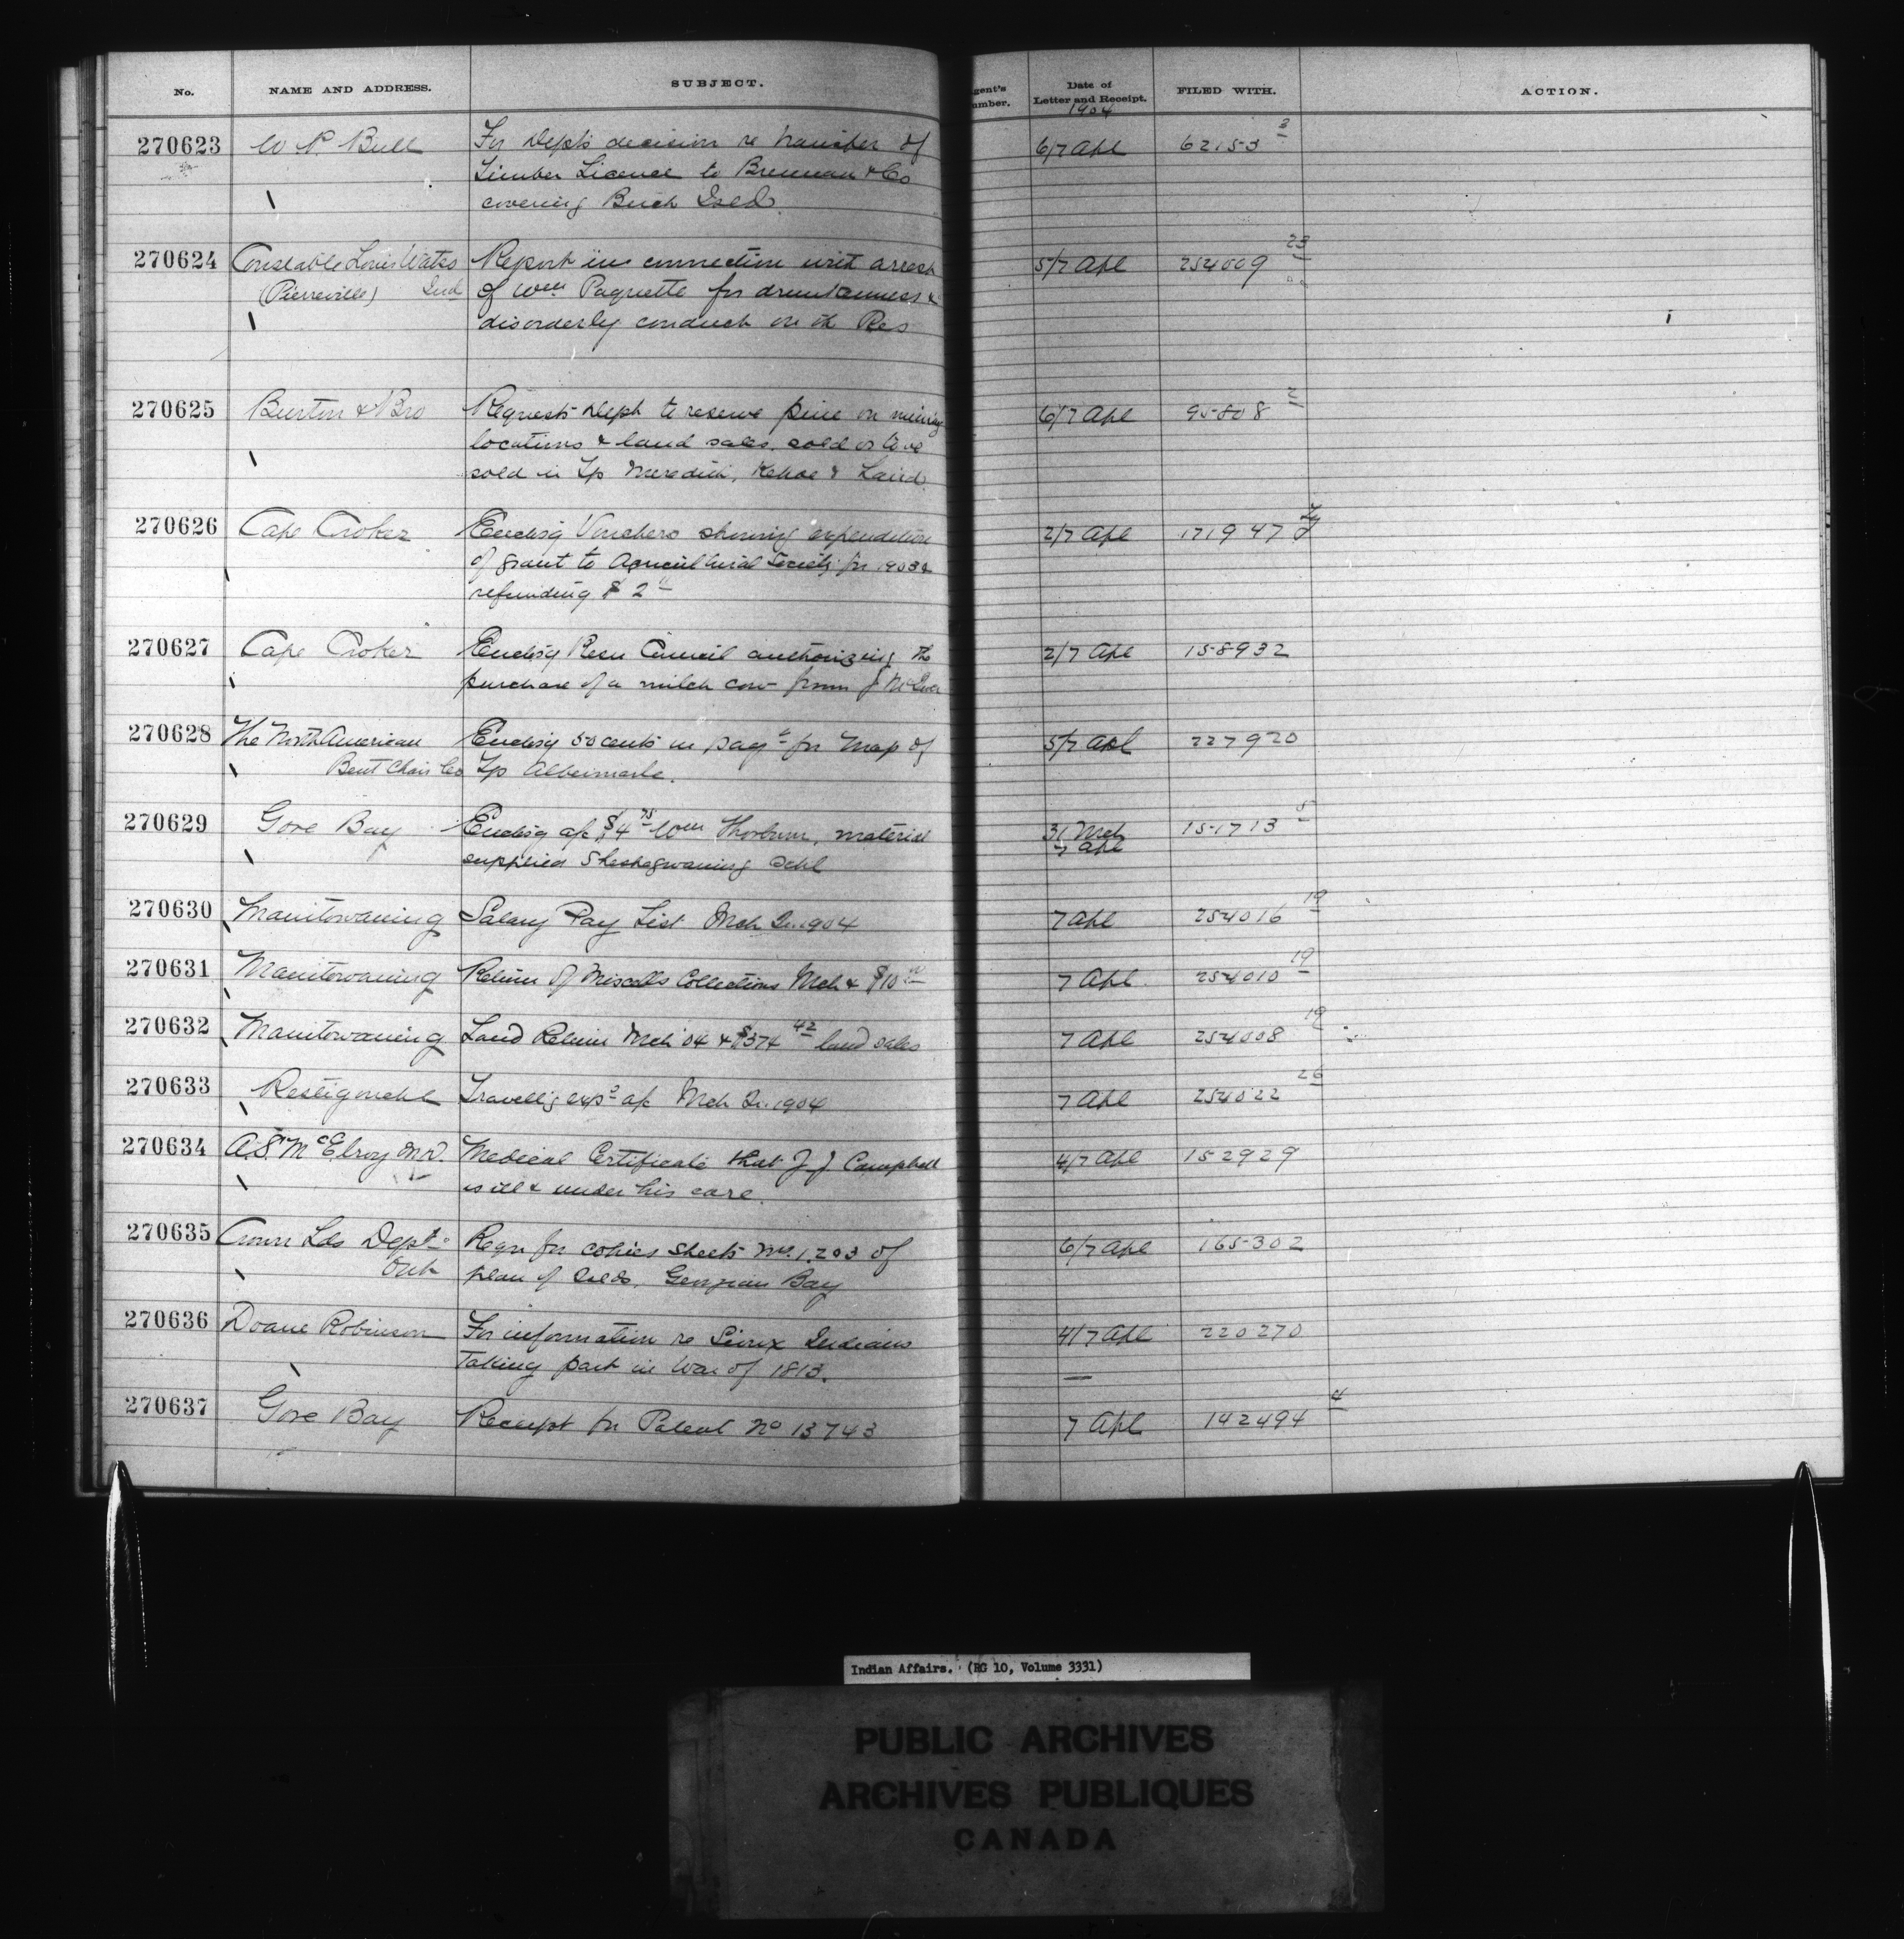 No. NAME AND ADDRESS. SUBJECT. gent's umber. Date of Letter and Receipt. FILED WITH. ACTION.
1904
270623 W P. Bull For Dept's decision re transfer of 6/7 Apl 62153 3
Timber Licence to Brennan & Co
covering Birch Isld.
270624 Constable Louis Watso Report in connection with arrest 5/7 Apl 254009 23
(Pierreville) Ind of Wm Paquette for drunkenness &
disorderly conduct on th Res
270625 Burton & Bro Requests Dept to reserve pine on mining 6/7 Apl 95808 2
locations & land sales, sold or to be
sold in Tp Meredith, Kehoe & Laird.
270626 Cape Croker Enclosg Vouchers showing expenditure 2/7 Apl 171947
of grant to Agricultural Society for 1903 &
refunding $2
270627 Cape Croker Enclosg Resn Council authorizing the 2/7 Apl 158932
purchase of a milch cow from J
270628 The North American Enclosg 50 cents in payt for Map of 5/7 Apl 227920
Bent Chair Co Tp Albemarle.
270629 Gore Bay Enclosg a/c $4 75 Wm Thorburn, material 31 Mch 151713 5
7 Apl
supplied Sheshegwaning Schl
270630 Manitowaning Salary Pay List Mch Qr. 1904 7 Apl 254016 19
270631 Manitowaning Return of Miscells Collections Mch & $10 00 7 Apl. 254010 19
270632 Manitowaning Land Return Mch '04 & $374 42 land sales 7 Apl 254008 19
270633 Restigouche Travellg exps a/c Mch Qr. 1904 7 Apl 254022 26
270634 A.S. McElroy M.D. Medical Certificate that J. J. Campbell 4/7 Apl 152929
is ill & under his care.
270635 Crown Lds Dept Reqn for copies sheets No. 1. 2 & 3 of 6/7 Apl 165302
Ont plan of Islds. Georgian Bay
270636 Doane Robinson For information re Sioux Indians 4/7 Apl 220270
taking part in War of 1813.
270637 Gore Bay Receipt for Patent No 13743 7 Apl 142494 4
Indian Affairs. (RG 10, Volume 3331)
PUBLIC ARCHIVES
ARCHIVES PUBLIQUES
CANADA